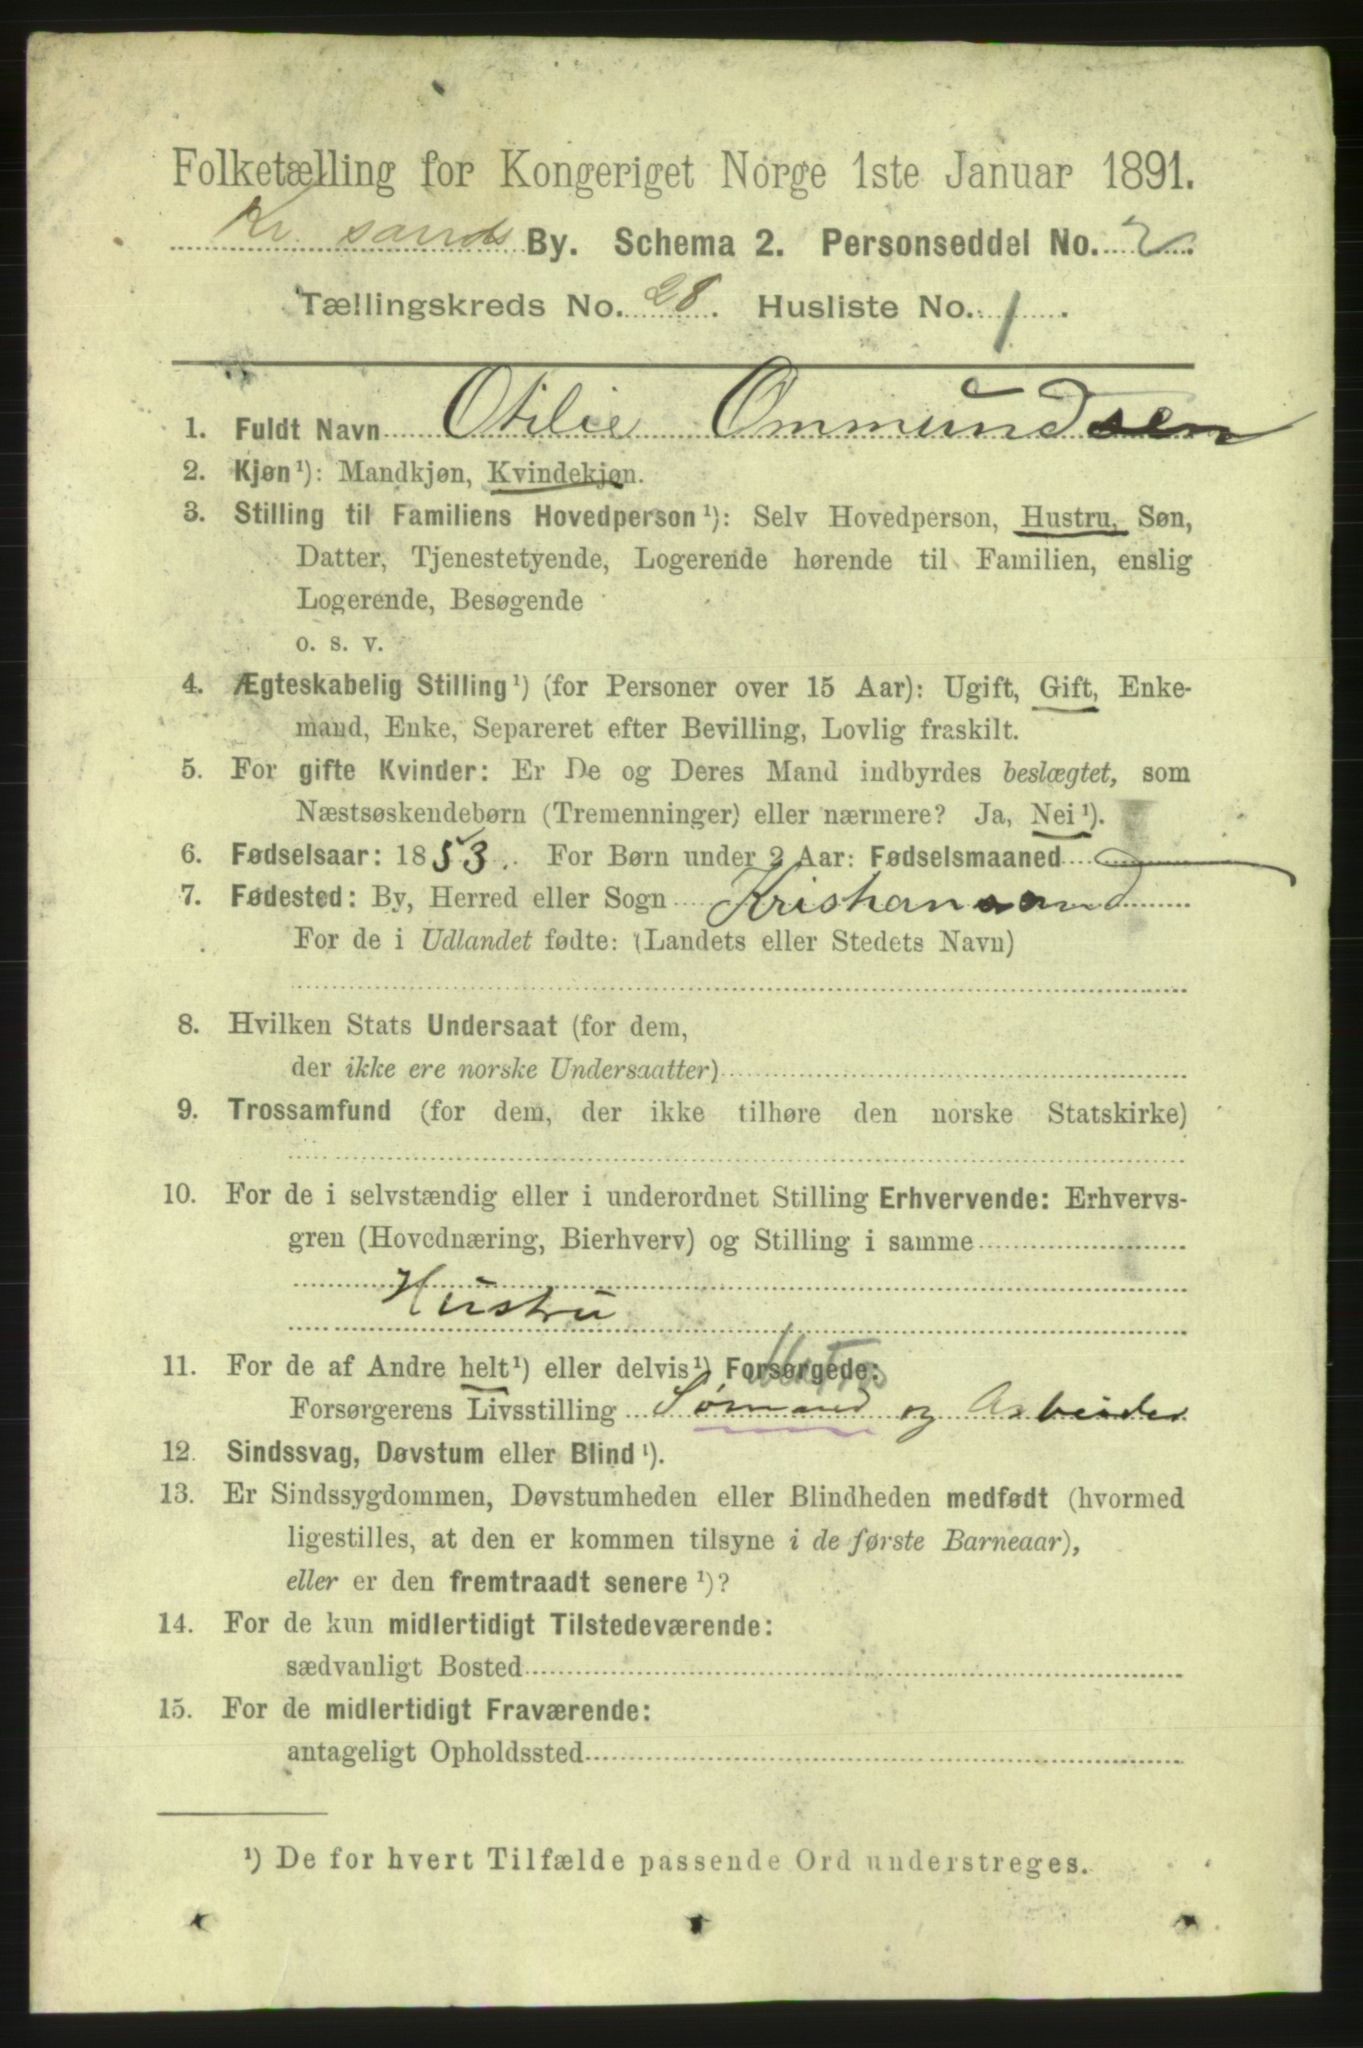 Folketælling for Kongeriget Norge 1ste Januar 1891.
Kr. sands By. Schema 2. Personseddel No. 2.
Tællingskreds No. 28. Husliste No. 1.
1. Fuldt Navn Otilie Ommundsen
2. Kjøn¹): Mandkjøn, Kvindekjøn.
3. Stilling til Familiens Hovedperson¹): Selv Hovedperson, Hustru, Søn,
Datter, Tjenestetyende, Logerende hørende til Familien, enslig
Logerende, Besøgende
o. s. v.
4. Ægteskabelig Stilling¹) (for Personer over 15 Aar): Ugift, Gift, Enke-
mand, Enke, Separeret efter Bevilling, Lovlig fraskilt.
5. For gifte Kvinder: Er De og Deres Mand indbyrdes beslægtet, som
Næstsøskendebørn (Tremenninger) eller nærmere? Ja, Nei¹).
6. Fødselsaar: 1853. For Børn under 2 Aar: Fødselsmaaned
7. Fødested: By, Herred eller Sogn Kristiansand
For de i Udlandet fødte: (Landets eller Stedets Navn)
8. Hvilken Stats Undersaat (for dem,
der ikke ere norske Undersaatter)
9. Trossamfund (for dem, der ikke tilhøre den norske Statskirke)
10. For de i selvstændig eller i underordnet Stilling Erhvervende: Erhvervs-
gren (Hovednæring, Bierhverv) og Stilling i samme
Hustru
11. For de af Andre helt¹) eller delvis¹) Forsørgede:
Forsørgerens Livsstilling Sømand og Arbeider
12. Sindssvag, Døvstum eller Blind¹).
13. Er Sindssygdommen, Døvstumheden eller Blindheden medfødt (hvormed
ligestilles, at den er kommen tilsyne i de første Barneaar),
eller er den fremtraadt senere¹)?
14. For de kun midlertidigt Tilstedeværende:
sædvanligt Bosted
15. For de midlertidigt Fraværende:
antageligt Opholdssted
¹) De for hvert Tilfælde passende Ord understreges.